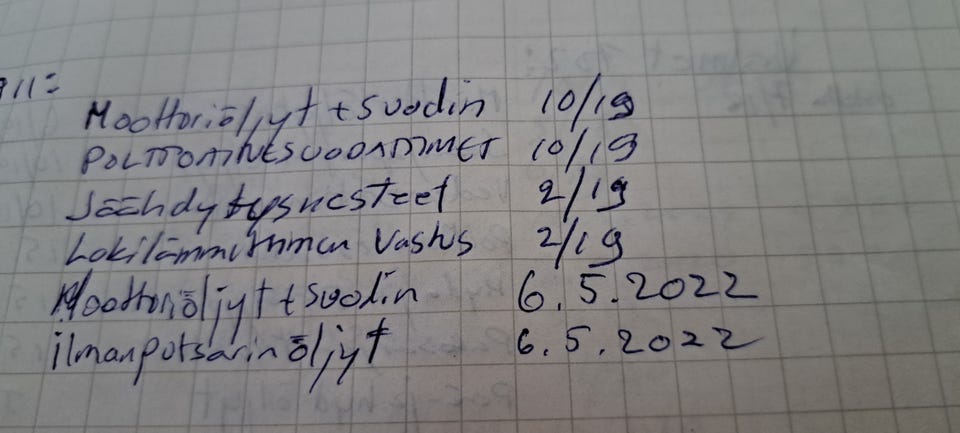 911:
Moottoriöljyt + suodin 10/19
POLTTOAINESUODATTIMET 10/19
Jäähdytysnesteet 2/19
Lohkilämmittimen Vastus 2/19
Moottoriöljyt + suodin 6.5.2022
ilmanputsarin öljyt 6.5.2022